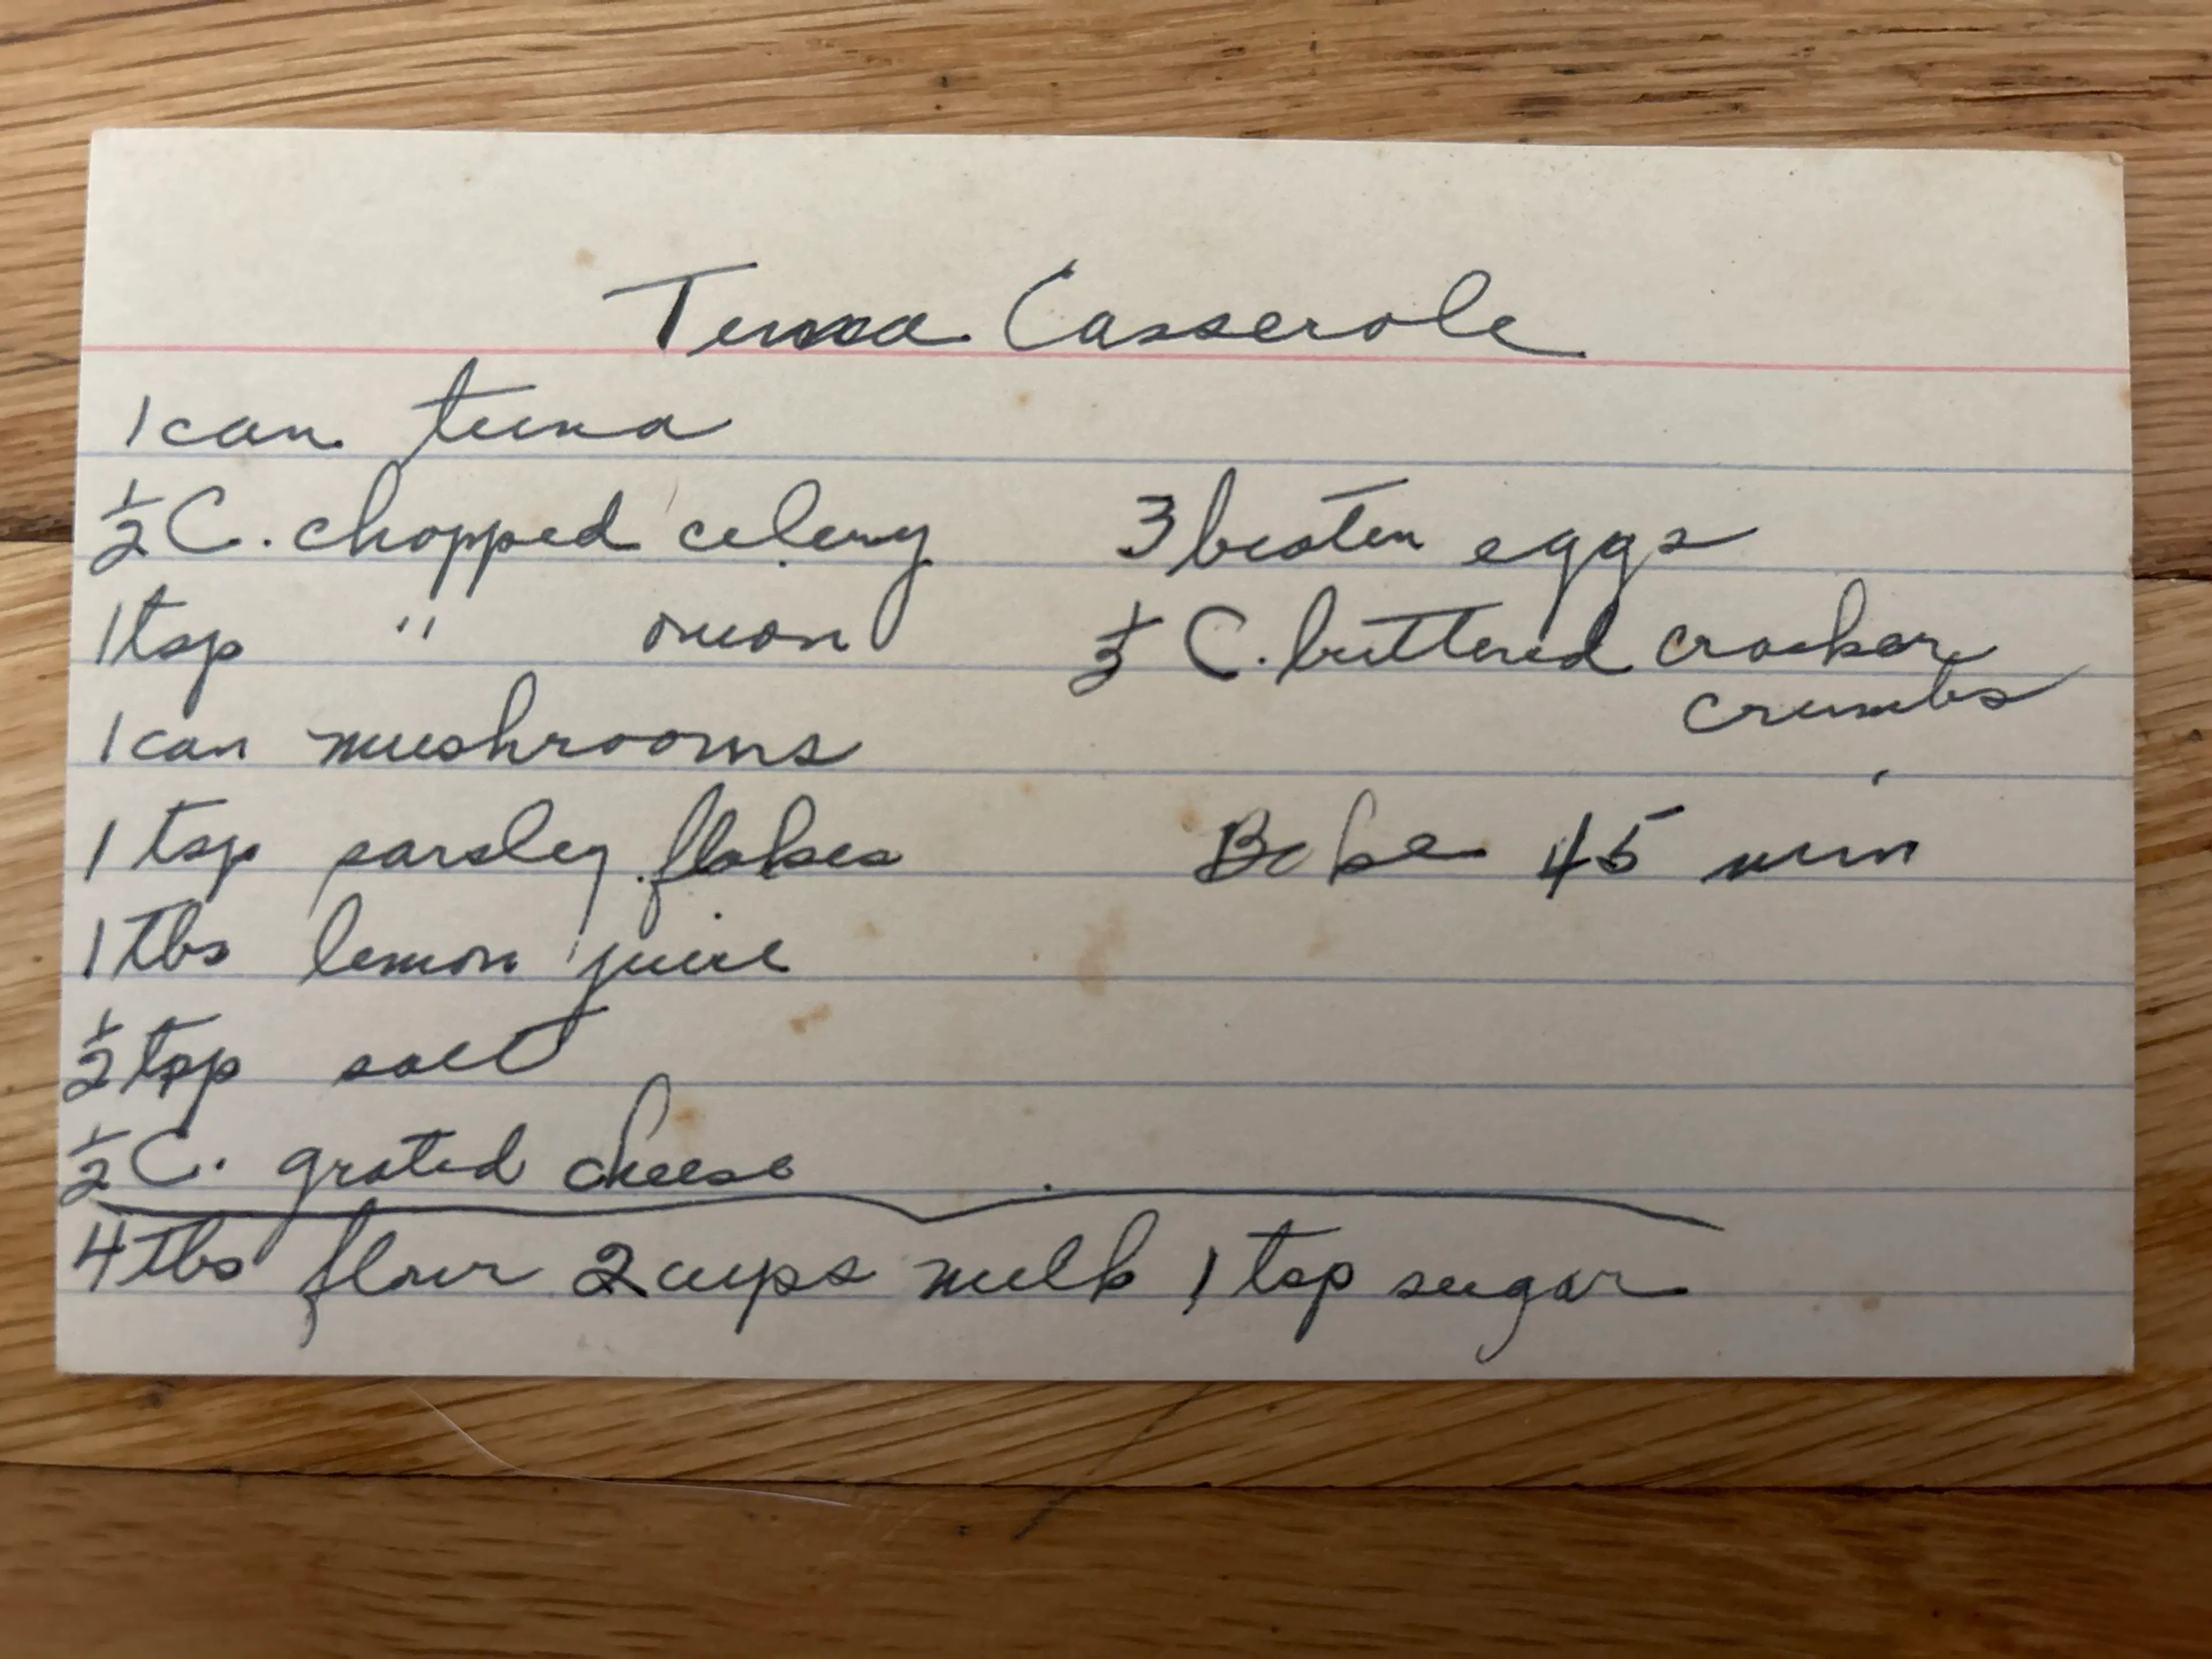 Tuna Casserole
1 can tuna
½ C. chopped celery
1 tsp " onion
1 can mushrooms
1 tsp parsley flakes
1 Tbs lemon juice
½ tsp salt
½ C. grated cheese
3 beaten eggs
C. buttered cracker
crumbs
Bake 45 min
4 Tbs flour 2 cups milk 1 tsp sugar